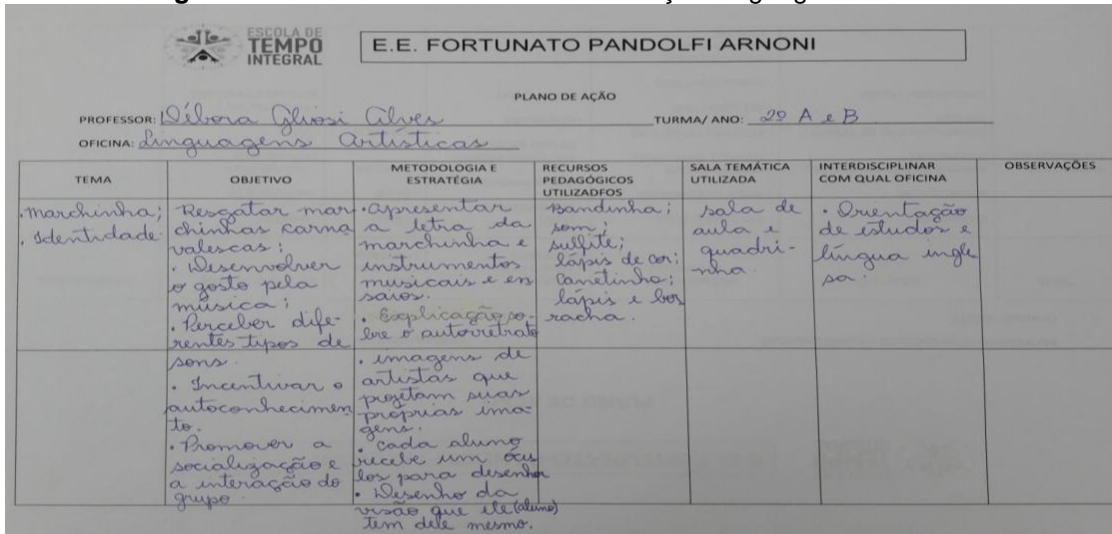 ESCOLA DE
TEMPO
INTEGRAL
E.E. FORTUNATO PANDOLFI ARNONI
PLANO DE AÇÃO
PROFESSOR: Débora Alves
TURMA/ ANO: 2º A e B
OFICINA: Linguagens Artísticas
TEMA
OBJETIVO
METODOLOGIA E
ESTRATÉGIA
RECURSOS
PEDAGÓGICOS
UTILIZADFOS
SALA TEMÁTICA
UTILIZADA
INTERDISCIPLINAR
COM QUAL OFICINA
OBSERVAÇÕES
. marchinha;
. Identidade
Resgatar mar
chinhas carna
valescas;
. Desenvolver
o gosto pela
música;
. Perceber dife-
rentes tipos de
sons.
. Incentivar o
autoconhecimen
to.
. Promover a
socialização e
a interação do
grupo
. apresentar
a letra da
marchinha e
instrumentos
musicais e en
saios.
. Explicação so-
bre o autorretrato
. imagens de
artistas que
projetam suas
próprias ima-
gens.
. cada aluno
recebe um ócu
los para desenhar
. Desenho da
visão que ele (aluno)
tem dele mesmo.
Bandinha;
som;
sulfite;
lápis de cor;
Canetinha;
lápis e bor
racha.
sala de
aula e
quadri-
nha
. Orientação
de estudos e
língua ingle
sa.